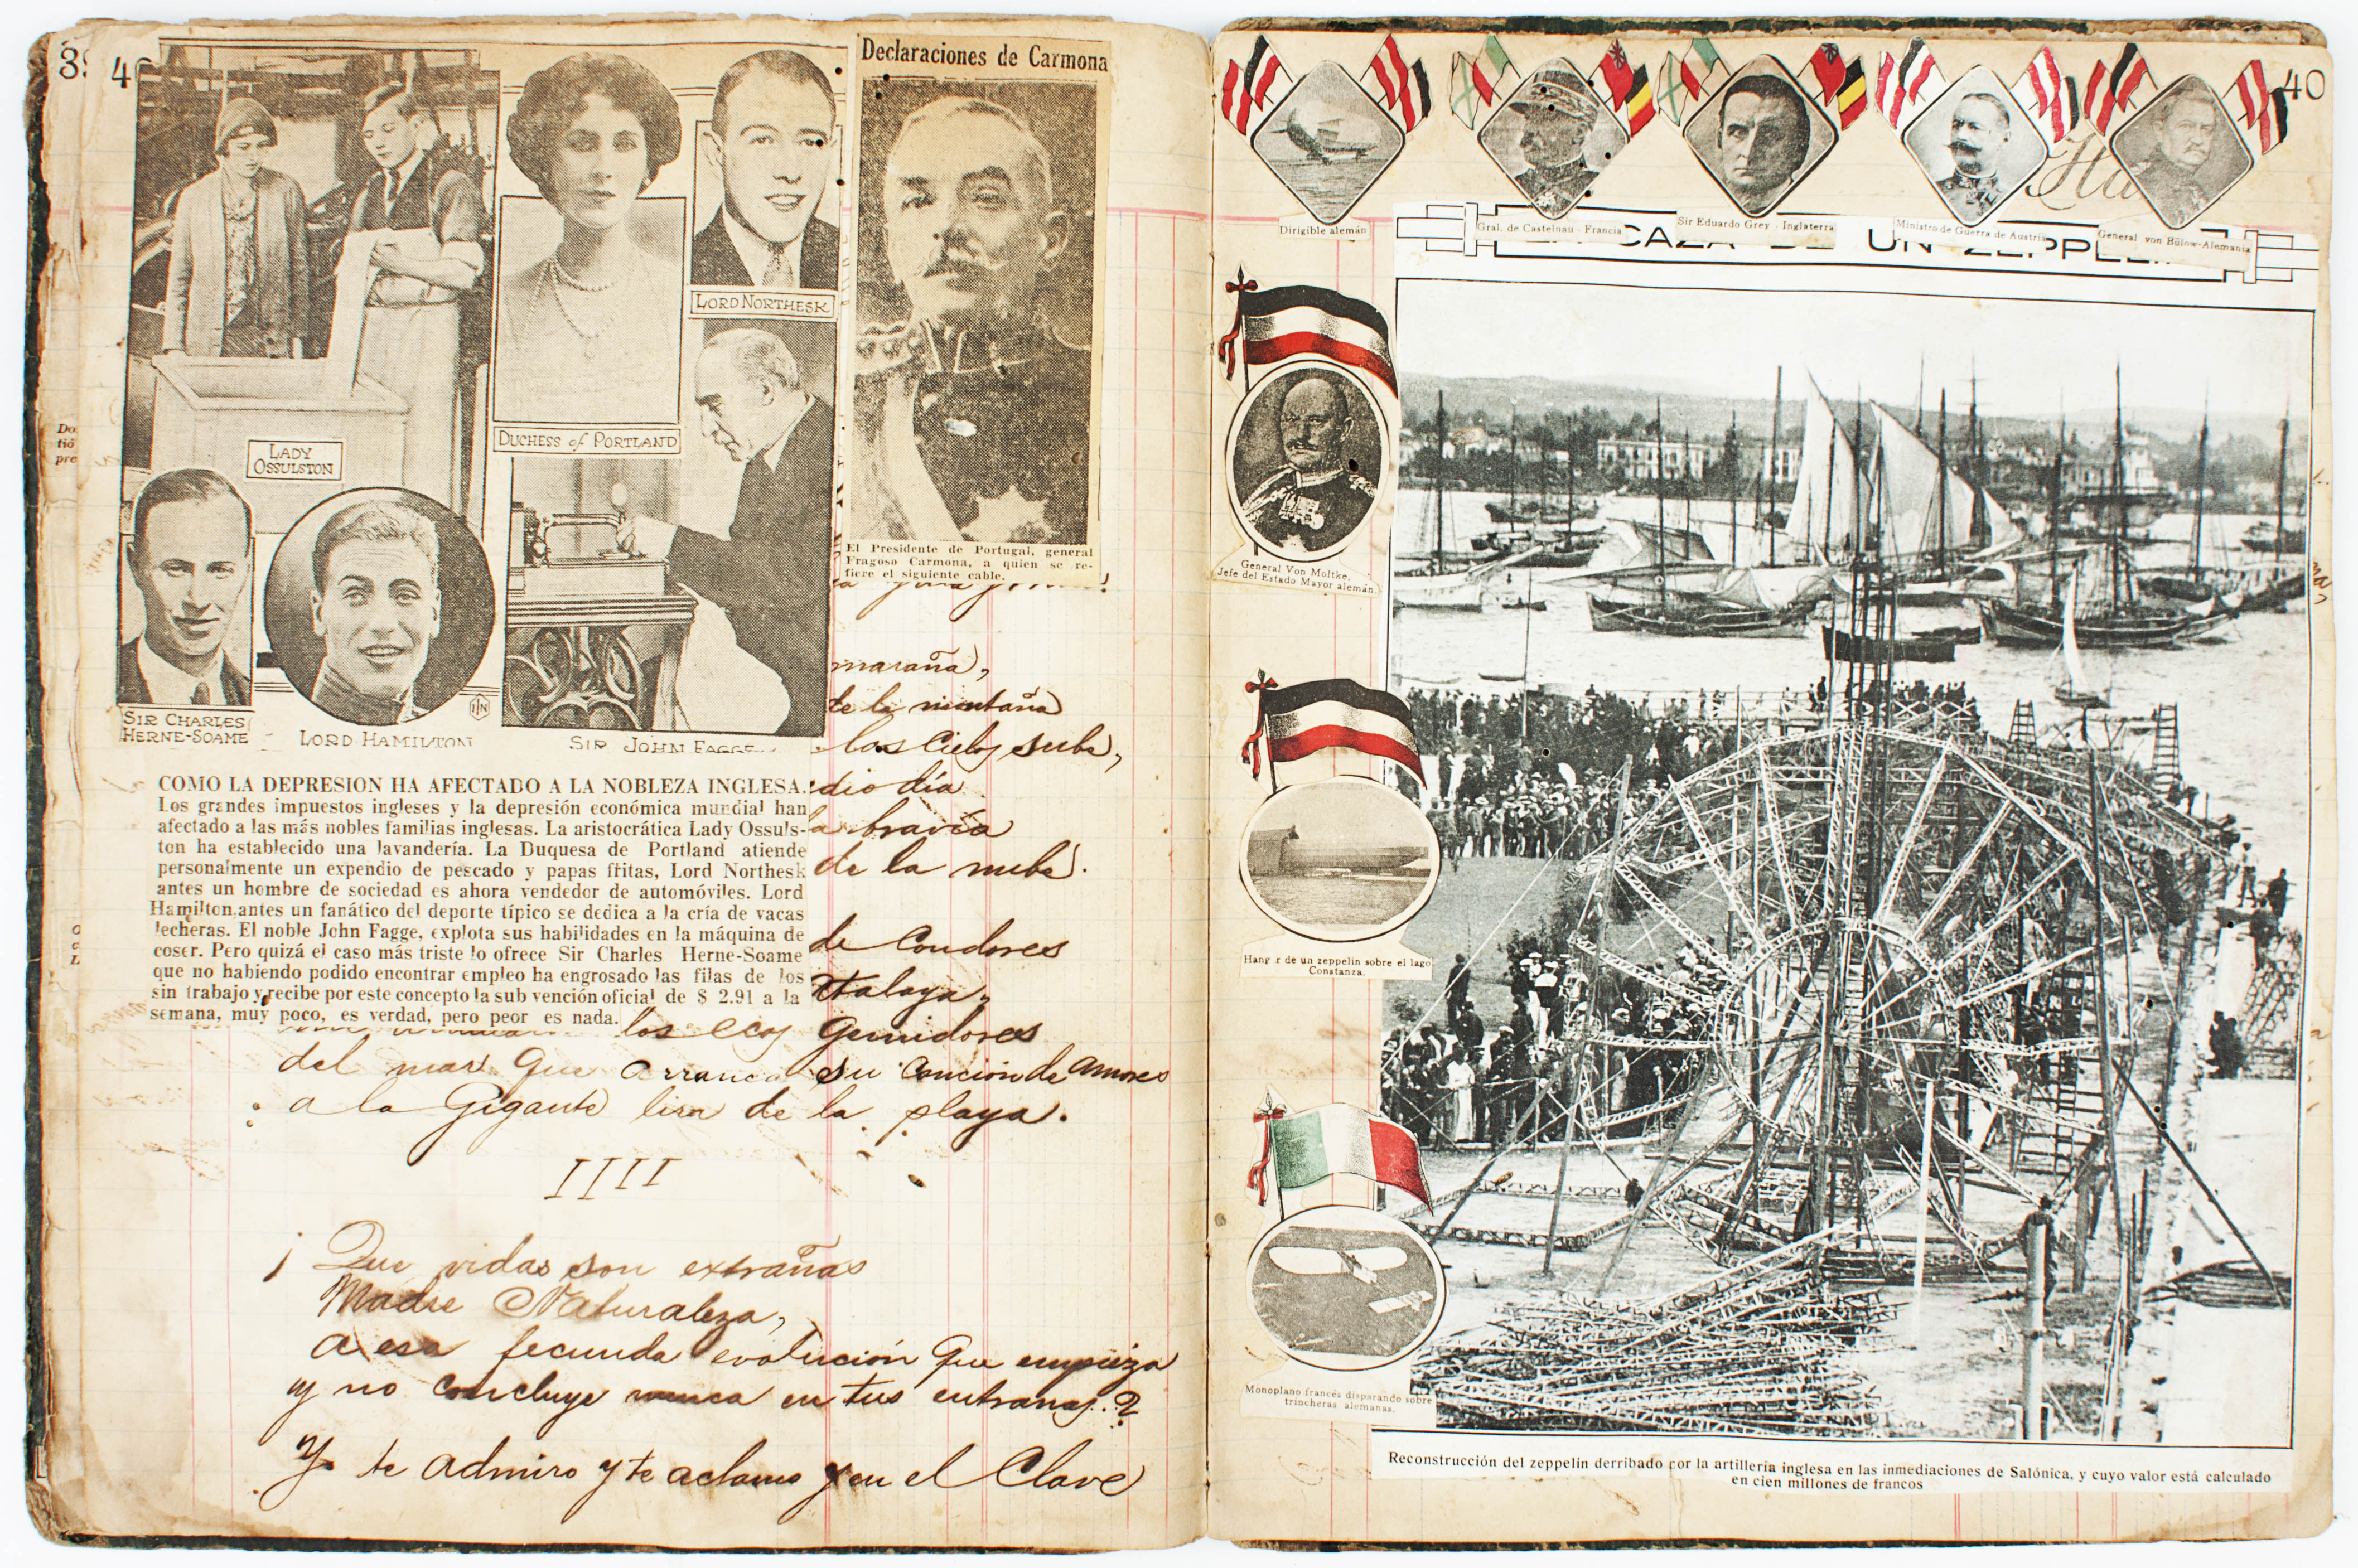 40
LORD NORTHESK
DUCHESS of PORTLAND
LADY
OSSULSTON
SIR CHARLES
HERNE-SOAME
LORD HAMILTON
SIR JOHN FAGGE
COMO LA DEPRESION HA AFECTADO A LA NOBLEZA INGLESA.
Los grandes impuestos ingleses y la depresión económica mundial han
afectado a las más nobles familias inglesas. La aristocrática Lady Ossuls-
ton ha establecido una lavandería. La Duquesa de Portland atiende
personalmente un expendio de pescado y papas fritas, Lord Northesk
antes un hombre de sociedad es ahora vendedor de automóviles. Lord
Hamilton, antes un fanático del deporte típico se dedica a la cría de vacas
lecheras. El noble John Fagge, explota sus habilidades en la máquina de
coser. Pero quizá el caso más triste lo ofrece Sir Charles Herne-Soame
que no habiendo podido encontrar empleo ha engrosado las filas de los
sin trabajo y recibe por este concepto la sub vención oficial de $ 2.91 a la
semana, muy poco, es verdad, pero peor es nada.
Declaraciones de Carmona
El Presidente de Portugal, general
Fragoso Carmona, a quien se re-
fiere el siguiente cable.
maraña,
te la montaña
los Cielos sube,
dio día
bravía
de la nube.
de Condores
Atalaya,
los ecos Gemidores
del mar que arranca su Canción de Amores
a la Gigante lira de la playa.
IIII
¡Que vidas son extrañas
Madre Naturaleza,
a esa fecunda evolución que empieza
y no concluye nunca en tus entranas.?
Yo te admiro y te aclamo y en el Clave
40
Dirigible alemán
Gral. de Castelnau - Francia
Sir Eduardo Grey Inglaterra
Ministro de Guerra de Austria
General von Bülow-Alemania
CAZA DE UN ZEPPELIN
General Von Moltke,
Jefe del Estado Mayor alemán.
Hangar de un zeppelin sobre el lago
Constanza.
Monoplano francés disparando sobre
trincheras alemanas.
Reconstrucción del zeppelin derribado por la artillería inglesa en las inmediaciones de Salónica, y cuyo valor está calculado
en cien millones de francos